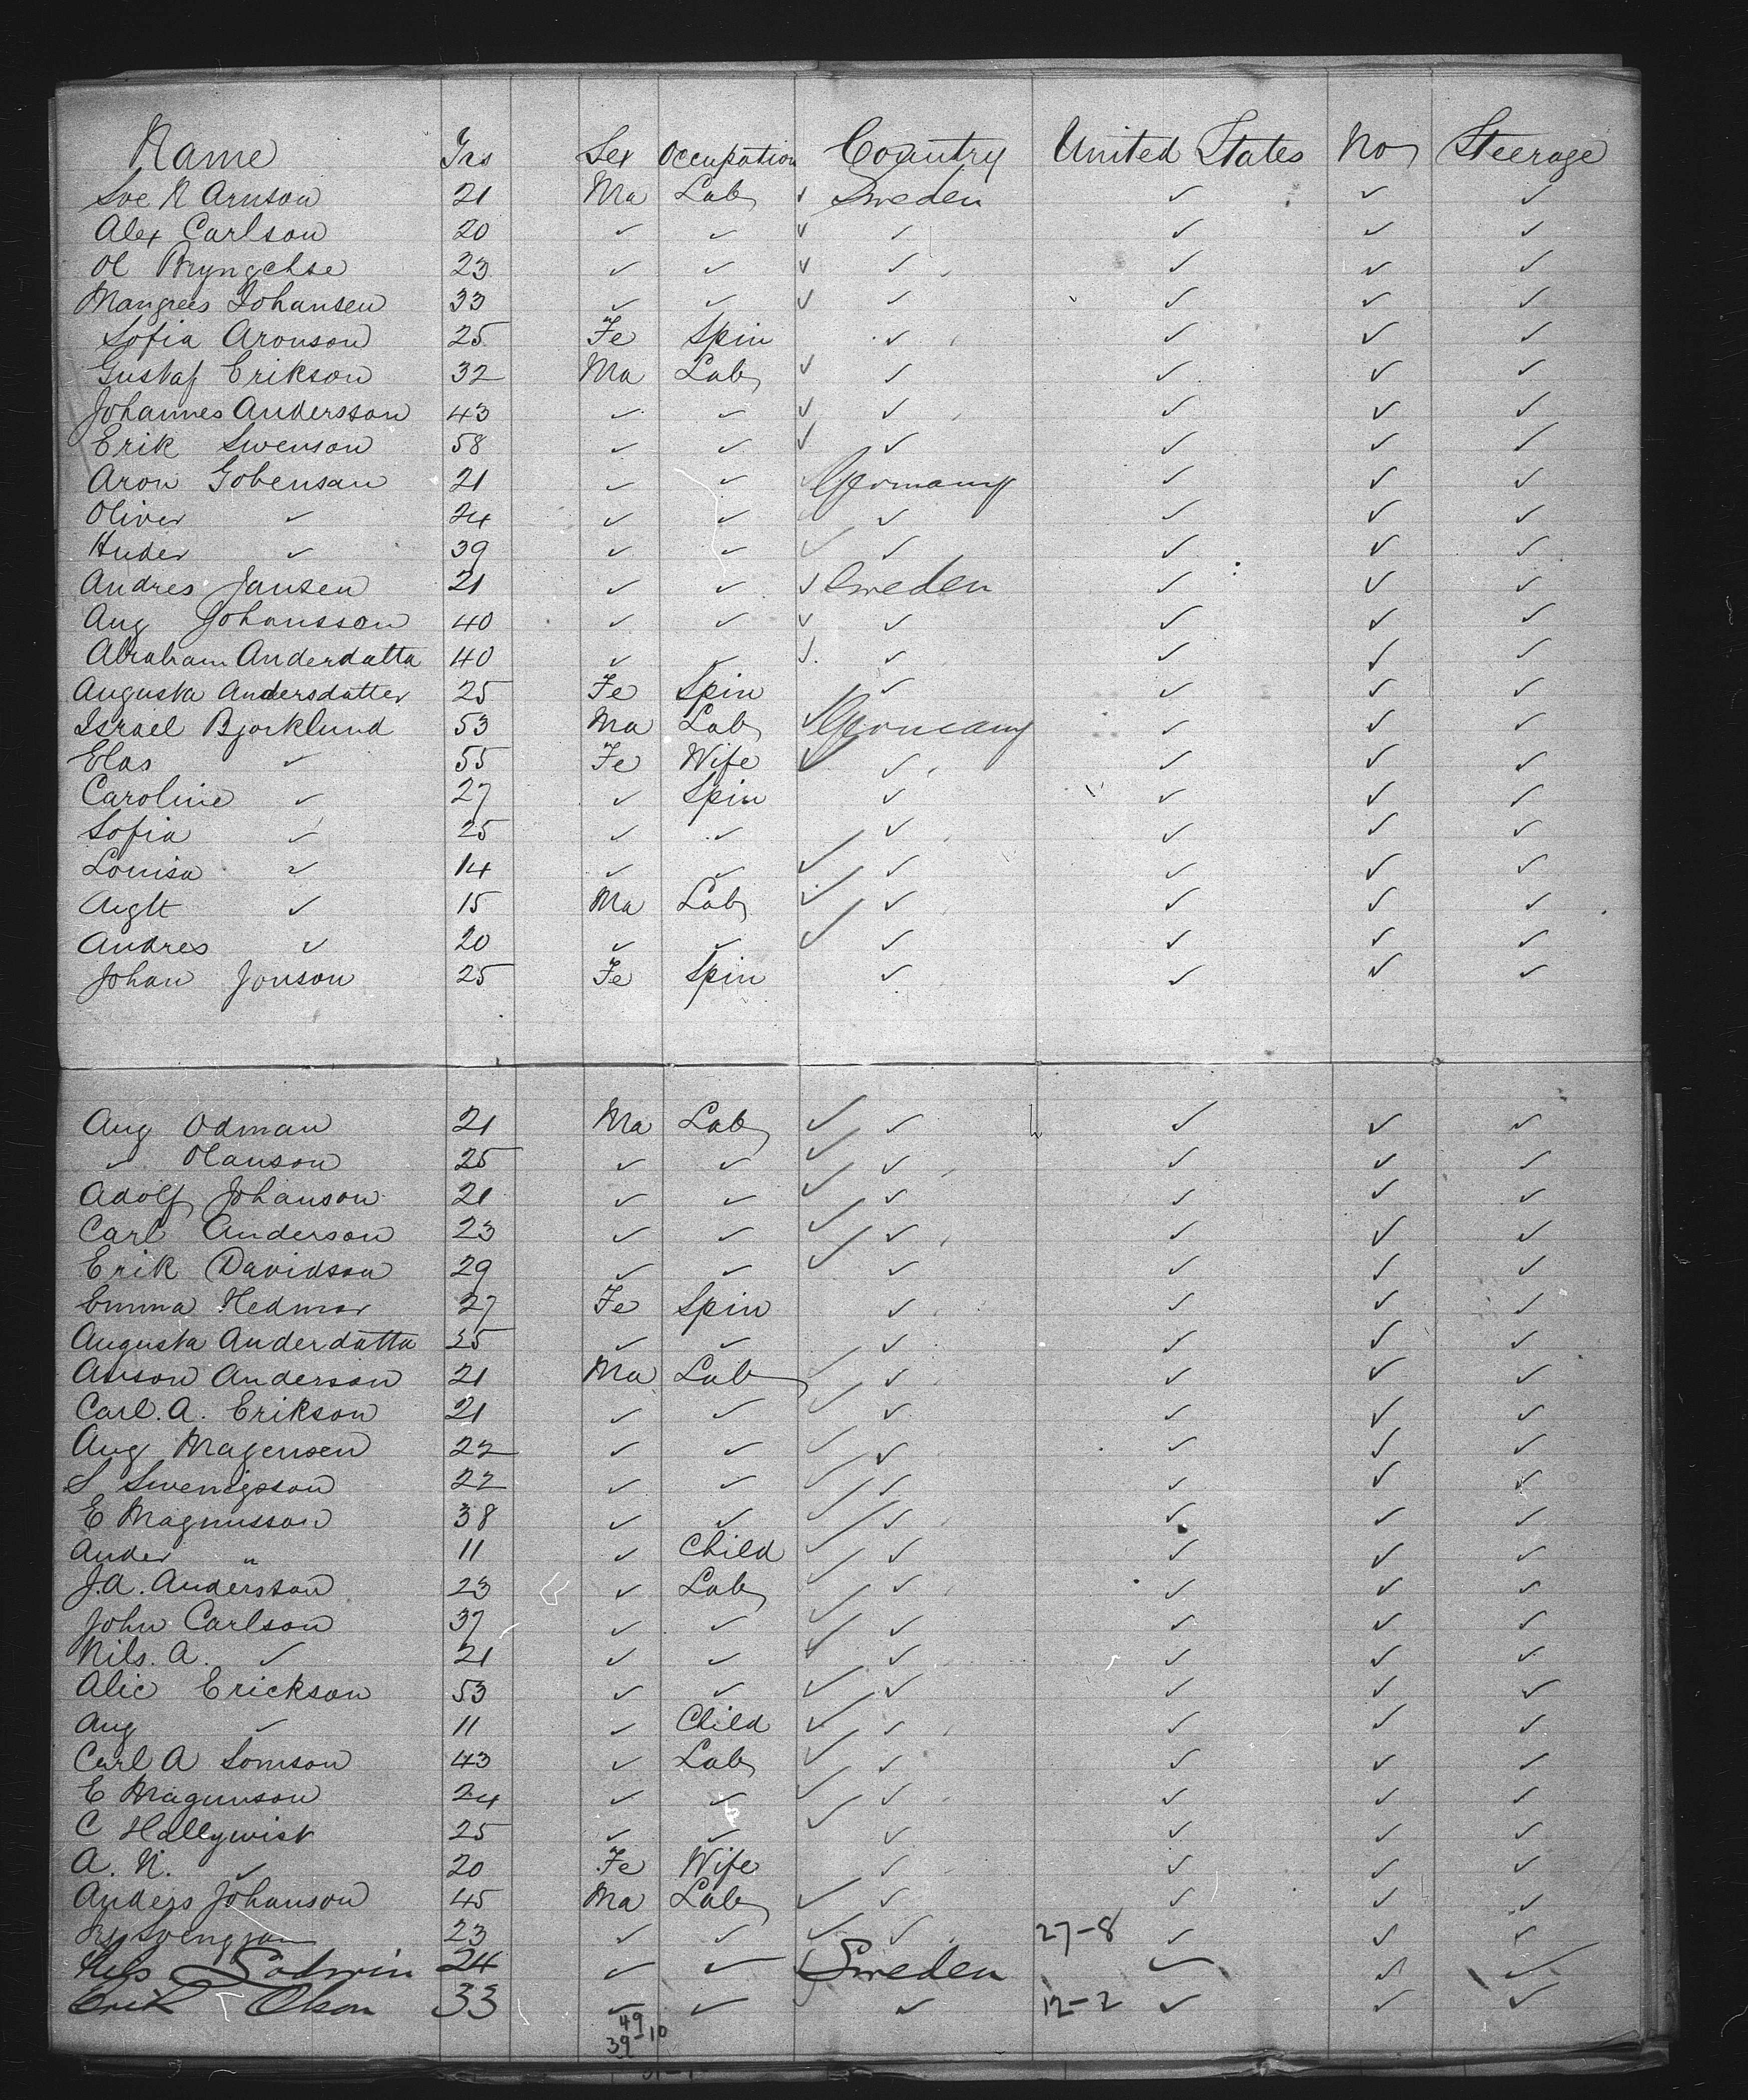 Name Yrs Sex Occupation Country United States No Steerage
Sve N Arnson 21 Ma Lab ✓ Sweden ✓ ✓ ✓
Alex Carlson 20 ✓ ✓ ✓ ✓ ✓ ✓ ✓
Ol 23 ✓ ✓ ✓ ✓ ✓ ✓ ✓
Mangrees Johansen 33 ✓ ✓ ✓ ✓ ✓ ✓ ✓
Sofia Aronson 25 Fe Spin ✓ ✓ ✓ ✓
Gustaf Erikson 32 Ma Lab ✓ ✓ ✓ ✓ ✓
Johannes Andersson 43 ✓ ✓ ✓ ✓ ✓ ✓ ✓
Erik Swenson 58 ✓ ✓ ✓ ✓ ✓ ✓ ✓
Aron Gobensan 21 ✓ ✓ Germany ✓ ✓ ✓
Oliver ✓ 24 ✓ ✓ ✓ ✓ ✓ ✓ ✓
Huder ✓ 39 ✓ ✓ ✓ ✓ ✓ ✓ ✓
Andres Jansen 21 ✓ ✓ ✓ Sweden ✓ ✓ ✓
Aug Johansson 40 ✓ ✓ ✓ ✓ ✓ ✓ ✓
Abraham Anderdatta 40 ✓ ✓ ✓ ✓ ✓ ✓ ✓
Augusta Andersdatter 25 Fe Spin ✓ ✓ ✓ ✓
Israel Bjorklund 53 Ma Lab ✓ Germany ✓ ✓ ✓
Elas ✓ 55 Fe Wife ✓ ✓ ✓ ✓ ✓
Caroline ✓ 27 ✓ Spin ✓ ✓ ✓ ✓
Sofia ✓ 25 ✓ ✓ ✓ ✓ ✓ ✓
Louisa ✓ 14 ✓ ✓ ✓ ✓ ✓ ✓ ✓
Augtt ✓ 15 Ma Lab ✓ ✓ ✓ ✓ ✓
Andres ✓ 20 ✓ ✓ ✓ ✓ ✓ ✓ ✓
Johan Jonson 25 Fe Spin ✓ ✓ ✓ ✓
Aug Odman 21 Ma Lab ✓ ✓ ✓ ✓ ✓
✓ Olanson 25 ✓ ✓ ✓ ✓ ✓ ✓ ✓
Adolf Johanson 21 ✓ ✓ ✓ ✓ ✓ ✓ ✓
Carl Anderson 23 ✓ ✓ ✓ ✓ ✓ ✓ ✓
Erik Davidson 29 ✓ ✓ ✓ ✓ ✓ ✓ ✓
Emma Hedmar 27 Fe Spin ✓ ✓ ✓ ✓
Augusta Anderdatta 25 ✓ ✓ ✓ ✓ ✓ ✓
Anson Anderson 21 Ma Lab ✓ ✓ ✓ ✓ ✓
Carl. A. Erikson 21 ✓ ✓ ✓ ✓ ✓ ✓ ✓
Aug Magensen 22 ✓ ✓ ✓ ✓ ✓ ✓ ✓
S Swenigsson 22 ✓ ✓ ✓ ✓ ✓ ✓ ✓
E Magnusson 38 ✓ ✓ ✓ ✓ ✓ ✓ ✓
Ander " 11 ✓ Child ✓ ✓ ✓ ✓ ✓
J.A. Andersson 23 ✓ Lab ✓ ✓ ✓ ✓ ✓
John Carlson 37 ✓ ✓ ✓ ✓ ✓ ✓ ✓
Nils. A. ✓ 21 ✓ ✓ ✓ ✓ ✓ ✓ ✓
Alic Erickson 53 ✓ ✓ ✓ ✓ ✓ ✓ ✓
Aug ✓ 11 ✓ Child ✓ ✓ ✓ ✓ ✓
Carl A Somson 43 ✓ Lab ✓ ✓ ✓ ✓ ✓
E Magunson 24 ✓ ✓ ✓ ✓ ✓ ✓ ✓
C Hallqwist 25 ✓ ✓ ✓ ✓ ✓ ✓ ✓
A. N. ✓ 20 Fe Wife ✓ ✓ ✓ ✓
Anders Johanson 45 Ma Lab ✓ ✓ ✓ ✓ ✓
23 ✓ ✓ ✓ ✓ 27-8 ✓ ✓ ✓
Nels Sodmin 24 ✓ ✓ Sweden ✓ ✓ ✓
Erik Olson 33 ✓ ✓ ✓ 12-2 ✓ ✓ ✓
49
39-10